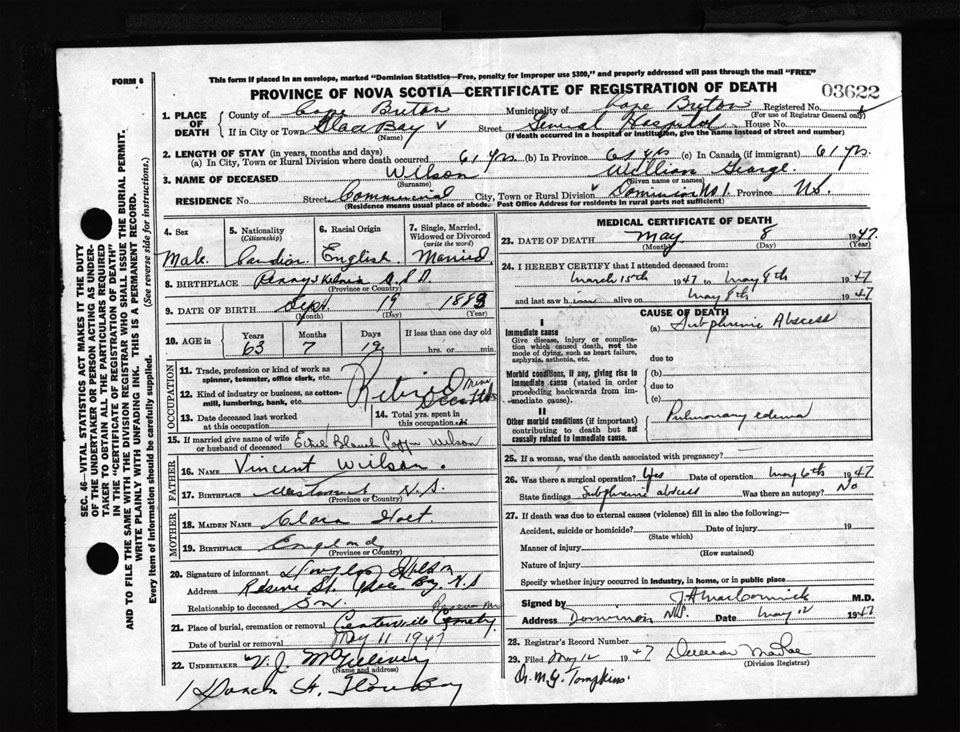 FORM 6
This form if placed in an envelope, marked "Dominion Statistics—Free, penalty for improper use $300," and properly addressed will pass through the mail "FREE"
PROVINCE OF NOVA SCOTIA—CERTIFICATE OF REGISTRATION OF DEATH
03622
1. PLACE OF DEATH
County of Cape Breton Municipality of Cape Breton Registered No.
(For use of Registrar General only)
If in City or Town Glace Bay Street General Hospital House No.
(Name) (If death occurred in a hospital or institution, give the name instead of street and number)
2. LENGTH OF STAY (in years, months and days)
(a) In City, Town or Rural Division where death occurred 61 yrs (b) In Province 61 yrs (c) In Canada (if immigrant) 61 yrs.
3. NAME OF DECEASED Wilson William George
(Surname) (Given name or names)
RESIDENCE No. Street Commercial City, Town or Rural Division Dominion No 1. Province N.S.
(Residence means usual place of abode. Post Office Address for residents in rural parts not sufficient)
4. Sex 5. Nationality (Citizenship) 6. Racial Origin 7. Single, Married, Widowed or Divorced (write the word)
Male. Canadian English. Married
8. BIRTHPLACE U.S.A.
(Province or Country)
9. DATE OF BIRTH Sept 19 1883
(Month) (Day) (Year)
10. AGE in Years Months Days If less than one day old
63 7 19 hrs. or min.
OCCUPATION
11. Trade, profession or kind of work as spinner, teamster, office clerk, etc.
12. Kind of industry or business, as cotton-mill, lumbering, bank, etc.
Retired
13. Date deceased last worked at this occupation
14. Total yrs. spent in this occupation
15. If married give name of wife or husband of deceased Ethel Blanch Wilson
FATHER
16. NAME Vincent Wilson.
17. BIRTHPLACE N.S.
(Province or Country)
MOTHER
18. MAIDEN NAME Clara Holt.
19. BIRTHPLACE England
(Province or Country)
20. Signature of informant Wilson
Address St. Glace Bay N.S
Relationship to deceased Son.
21. Place of burial, cremation or removal Centerville Cemetry
Date of burial or removal May 11 1947
22. UNDERTAKER V. J. McGillivery
(Name and address)
St. Glace Bay
MEDICAL CERTIFICATE OF DEATH
23. DATE OF DEATH May 8 1947.
(Month) (Day) (Year)
24. I HEREBY CERTIFY that I attended deceased from:
March 15th 1947 to May 8th 1947
and last saw him alive on May 8th 1947
CAUSE OF DEATH
I
Immediate cause
Give disease, injury or complication which caused death, not the mode of dying, such as heart failure, asphyxia, asthenia, etc.
(a) Subphrenic Abscess
due to
Morbid conditions, if any, giving rise to immediate cause (stated in order proceeding backwards from immediate cause).
(b)
due to
(c)
II
Other morbid conditions (if important) contributing to death but not causally related to immediate cause.
Pulmonary edema
25. If a woman, was the death associated with pregnancy?
26. Was there a surgical operation? Yes Date of operation May 6th 1947
State findings Subphrenic abscess Was there an autopsy? No
27. If death was due to external causes (violence) fill in also the following:—
Accident, suicide or homicide? Date of injury 19
(State which)
Manner of injury
(How sustained)
Nature of injury
Specify whether injury occurred in industry, in home, or in public place
Signed by J A MacCormick M.D.
Address Dominion N.S. Date May 12 1947
28. Registrar's Record Number
29. Filed May 12 1947 Duncan MacRae
(Division Registrar)
Dr. M.G. Tompkins.
SEC. 46—VITAL STATISTICS ACT MAKES IT THE DUTY
OF THE UNDERTAKER OR PERSON ACTING AS UNDER-
TAKER TO OBTAIN ALL THE PARTICULARS REQUIRED
IN THE "CERTIFICATE OF REGISTRATION OF DEATH"
AND TO FILE THE SAME WITH THE DIVISION REGISTRAR WHO SHALL ISSUE THE BURIAL PERMIT.
WRITE PLAINLY WITH UNFADING INK. THIS IS A PERMANENT RECORD.
Every item of information should be carefully supplied. (See reverse side for instructions.)